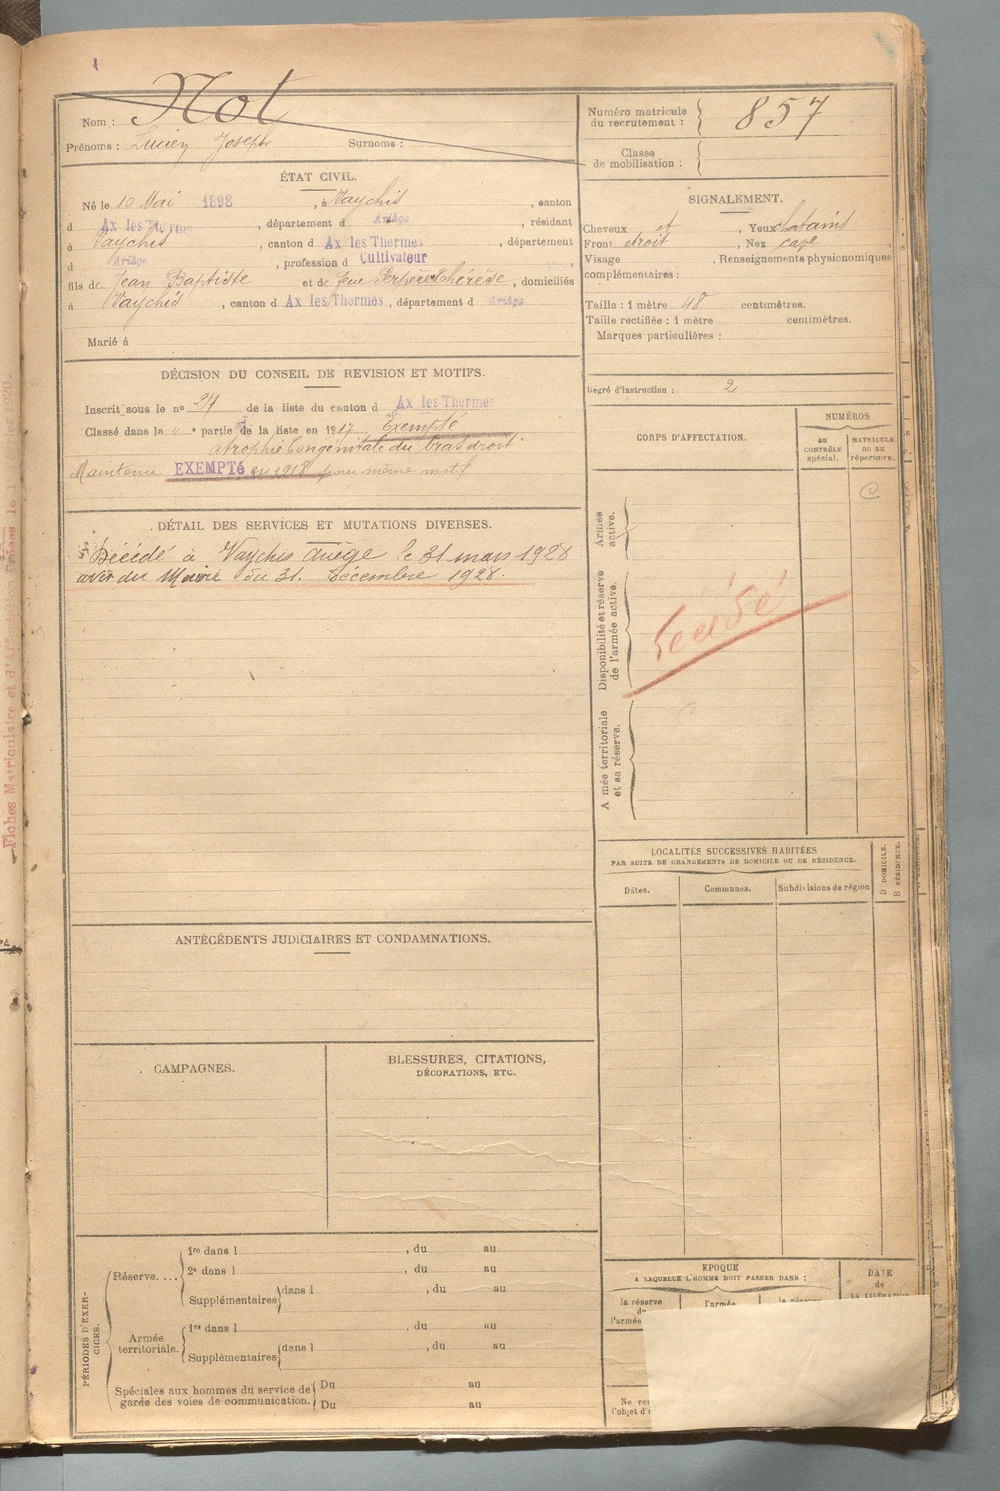 Not
Nom :
Prénoms : Lucien Joseph Surnoms :
Numéro matricule du recrutement : 857
Classe de mobilisation :
ÉTAT CIVIL.
Né le 10 Mai 1898, à Vaychis, canton
d Ax les Thermes, département d Ariège, résidant
à Vaychis, canton d Ax les Thermes, département
d Ariège, profession d Cultivateur
fils de Jean Baptiste et de feue Thérèse, domiciliés
à Vaychis, canton d Ax les Thermes, département d Ariège
Marié à
SIGNALEMENT.
Cheveux et, Yeux chatains
Front etroit, Nez cave
Visage, Renseignements physionomiques
complémentaires :
Taille : 1 mètre 48 centimètres.
Taille rectifiée : 1 mètre centimètres.
Marques particulières :
Degré d'instruction : 2
DÉCISION DU CONSEIL DE REVISION ET MOTIFS.
Inscrit sous le n° 27 de la liste du canton d Ax les Thermes
Classé dans la " e partie de la liste en 1917 Exempté
atrophie Congénitale du bras droit
Maintenu EXEMPTé en 1918 pour même motif
DÉTAIL DES SERVICES ET MUTATIONS DIVERSES.
Décédé à Vaychis Ariège le 31 mars 1928
avis du Maire du 31 Décembre 1928.
CORPS D'AFFECTATION.
NUMÉROS
AU CONTRÔLE spécial.
MATRICULE OU AU répertoire.
Armée active.
Disponibilité et réserve de l'armée active.
A mée territoriale et sa réserve.
Décédé
LOCALITÉS SUCCESSIVES HABITÉES
PAR SUITE DE CHANGEMENTS DE DOMICILE OU DE RÉSIDENCE.
Dates.
Communes.
Subdivisions de région
D DOMICILE.
R RÉSIDENCE.
ANTÉCÉDENTS JUDICIAIRES ET CONDAMNATIONS.
CAMPAGNES.
BLESSURES, CITATIONS,
DÉCORATIONS, ETC.
PÉRIODES D'EXERCICES.
Réserve....
1re dans l, du au
2e dans l, du au
Supplémentaires dans l, du au
Armée territoriale.
1re dans l, du au
Supplémentaires dans l, du au
Spéciales aux hommes du service de garde des voies de communication.
Du au
Du au
EPOQUE
A LAQUELLE L'HOMME DOIT PASSER DANS :
la réserve de l'armée
l'armée
la réserve
DATE
de
LA LIBÉRATION
Ne
l'objet d'